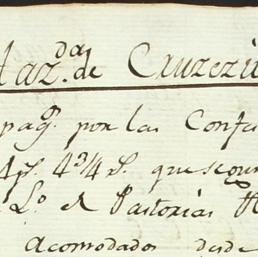 Haz.da de Cruzezi
pag.o por las Conf
4p.s 4 3/4 r.s que se
L.o de Pastorias
acomodados desde